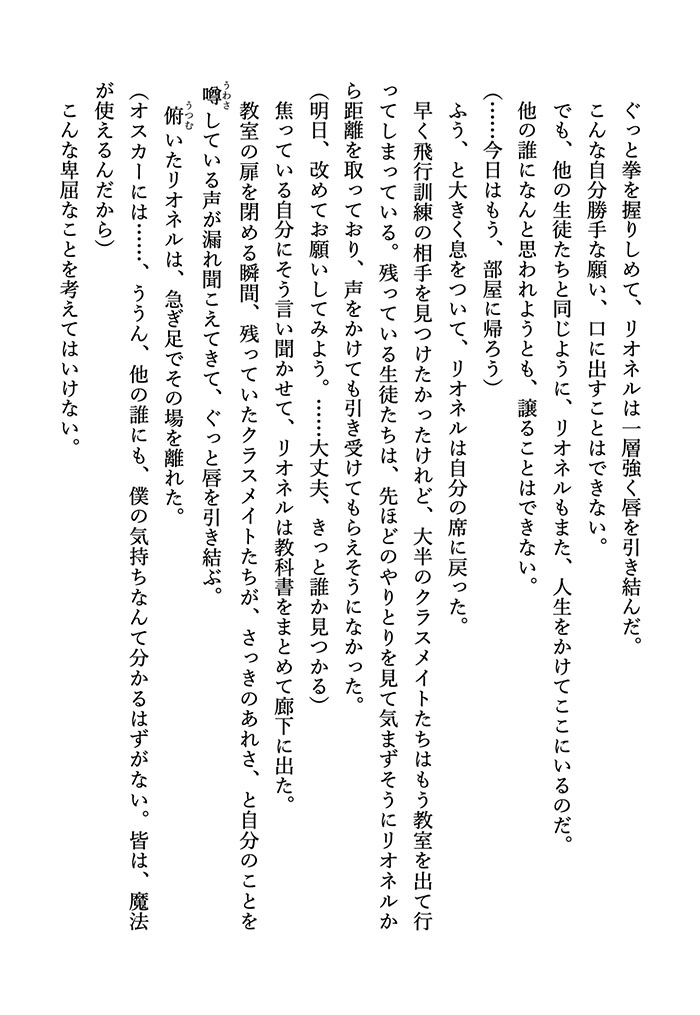 ぐっと拳を握りしめて、リオネルは一層強く唇を引き結んだ。
こんな自分勝手な願い、口に出すことはできない。
でも、他の生徒たちと同じように、リオネルもまた、人生をかけてここにいるのだ。
他の誰になんと思われようとも、譲ることはできない。
(……今日はもう、部屋に帰ろう)
ふう、と大きく息をついて、リオネルは自分の席に戻った。
早く飛行訓練の相手を見つけたかったけれど、大半のクラスメイトたちはもう教室を出て行
ってしまっている。残っている生徒たちは、先ほどのやりとりを見て気まずそうにリオネルか
ら距離を取っており、声をかけても引き受けてもらえそうになかった。
(明日、改めてお願いしてみよう。……大丈夫、きっと誰か見つかる)
焦っている自分にそう言い聞かせて、リオネルは教科書をまとめて廊下に出た。
教室の扉を閉める瞬間、残っていたクラスメイトたちが、さっきのあれさ、と自分のことを
噂うわさしている声が漏れ聞こえてきて、ぐっと唇を引き結ぶ。
俯うつむいたリオネルは、急ぎ足でその場を離れた。
(オスカーには……、ううん、他の誰にも、僕の気持ちなんて分かるはずがない。皆は、魔法
が使えるんだから)
こんな卑屈なことを考えてはいけない。